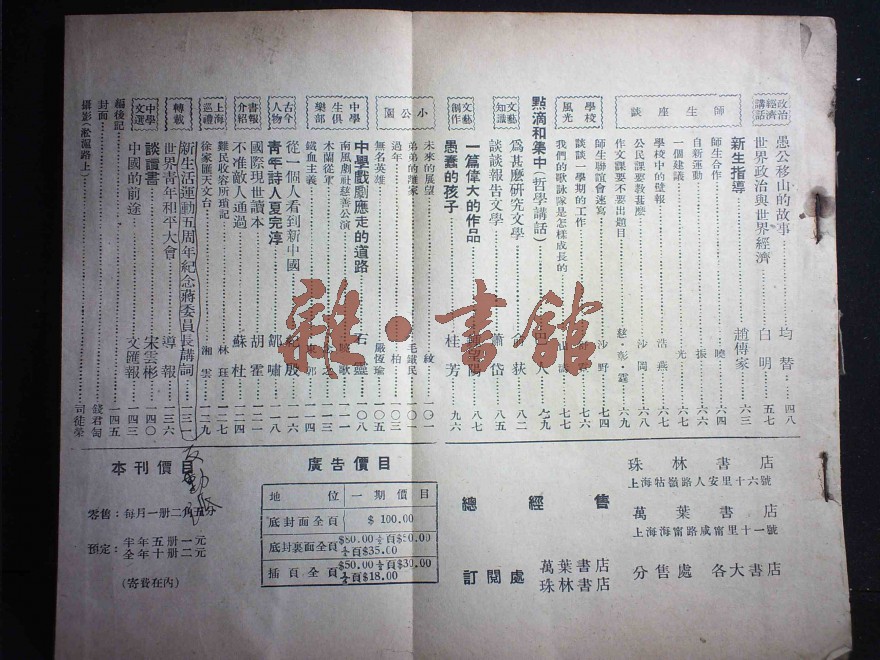 政治經濟講話
愚公移山的故事 均替 四八
世界政治與世界經濟 白明 五七
師生座談
新生指導 趙傳家 六三
師生合作 曉 六四
自新運動 振 六六
一個建議 光
學校中的壁報 浩燕 六七
公民課要教甚麼 沙岡 六八
作文課要不要出題目 慈·彰·霆 六九
學校風光
師生聯誼會速寫 沙野 七四
談談一學期的工作
我們的歌詠隊是怎樣成長的 七七
點滴和集中(哲學講話) 巴人 七九
文藝知識
爲甚麽研究文學 荻 八二
談談報告文學 蕭岱 八五
文藝創作
一篇偉大的作品 八七
愚蠢的孩子 桂芳 九六
小公園
未來的展望 紋 一〇一
弟弟的離家 毛鐵民
過年 柏 一〇三
無名英雄 嚴恆瑜 一〇五
中學生俱樂部
中學戲劇應走的道路 石靈 一〇八
南風劇社慈善公演 歌 一一一
木蘭從軍 一一三
鐵血主義 一一四
古今人物
從一個人看到新中國 殷 一一六
青年詩人夏完淳 鄒嘯 一一八
書報介紹
國際現世讀本 胡霍 一二一
不准敵人通過 蘇杜 一二四
上海巡禮
難民收容所瑣記 林珏 一二七
徐家匯天文台 湘雲 一二九
轉載
新生活運動五周年紀念蔣委員長講詞 一三一
世界青年和平大會 導報 一三六
中學文選
談讀書 宋雲彬 一四〇
中國的前途 文匯報 一四三
編後記 一四五
封面 錢君匋
攝影(淞滬路上) 司徒榮
雜·書館
珠林書店
上海牯嶺路人安里十六號
總經售
萬葉書店
上海海甯路咸甯里十一號
訂閱處 萬葉書店
珠林書店
分售處 各大書店
廣告價目
地位 一期價目
底封面全頁 $100.00
底封裏面全頁 $50.00 ½頁$50.00
¼頁$35.00
插頁全頁 $50.00 ½頁$30.00
¼頁$18.00
本刊價目
零售:每月一册二角五分
預定:半年五册一元
全年十册二元
(寄費在內)